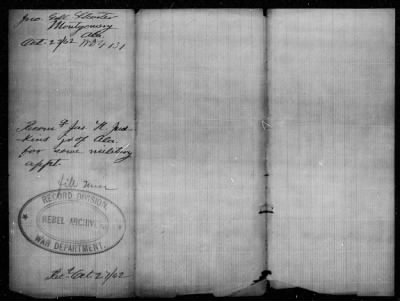 Jno. Gill Shorter
Montgomery
Ala.
Oct. 27/62 WD
Recomds Jas. H. Jud-
kins of Ala.
for some military
appt.
file
RECORD DIVISION
REBEL ARCHIVES
WAR DEPARTMENT.
Recd Oct. 27/62